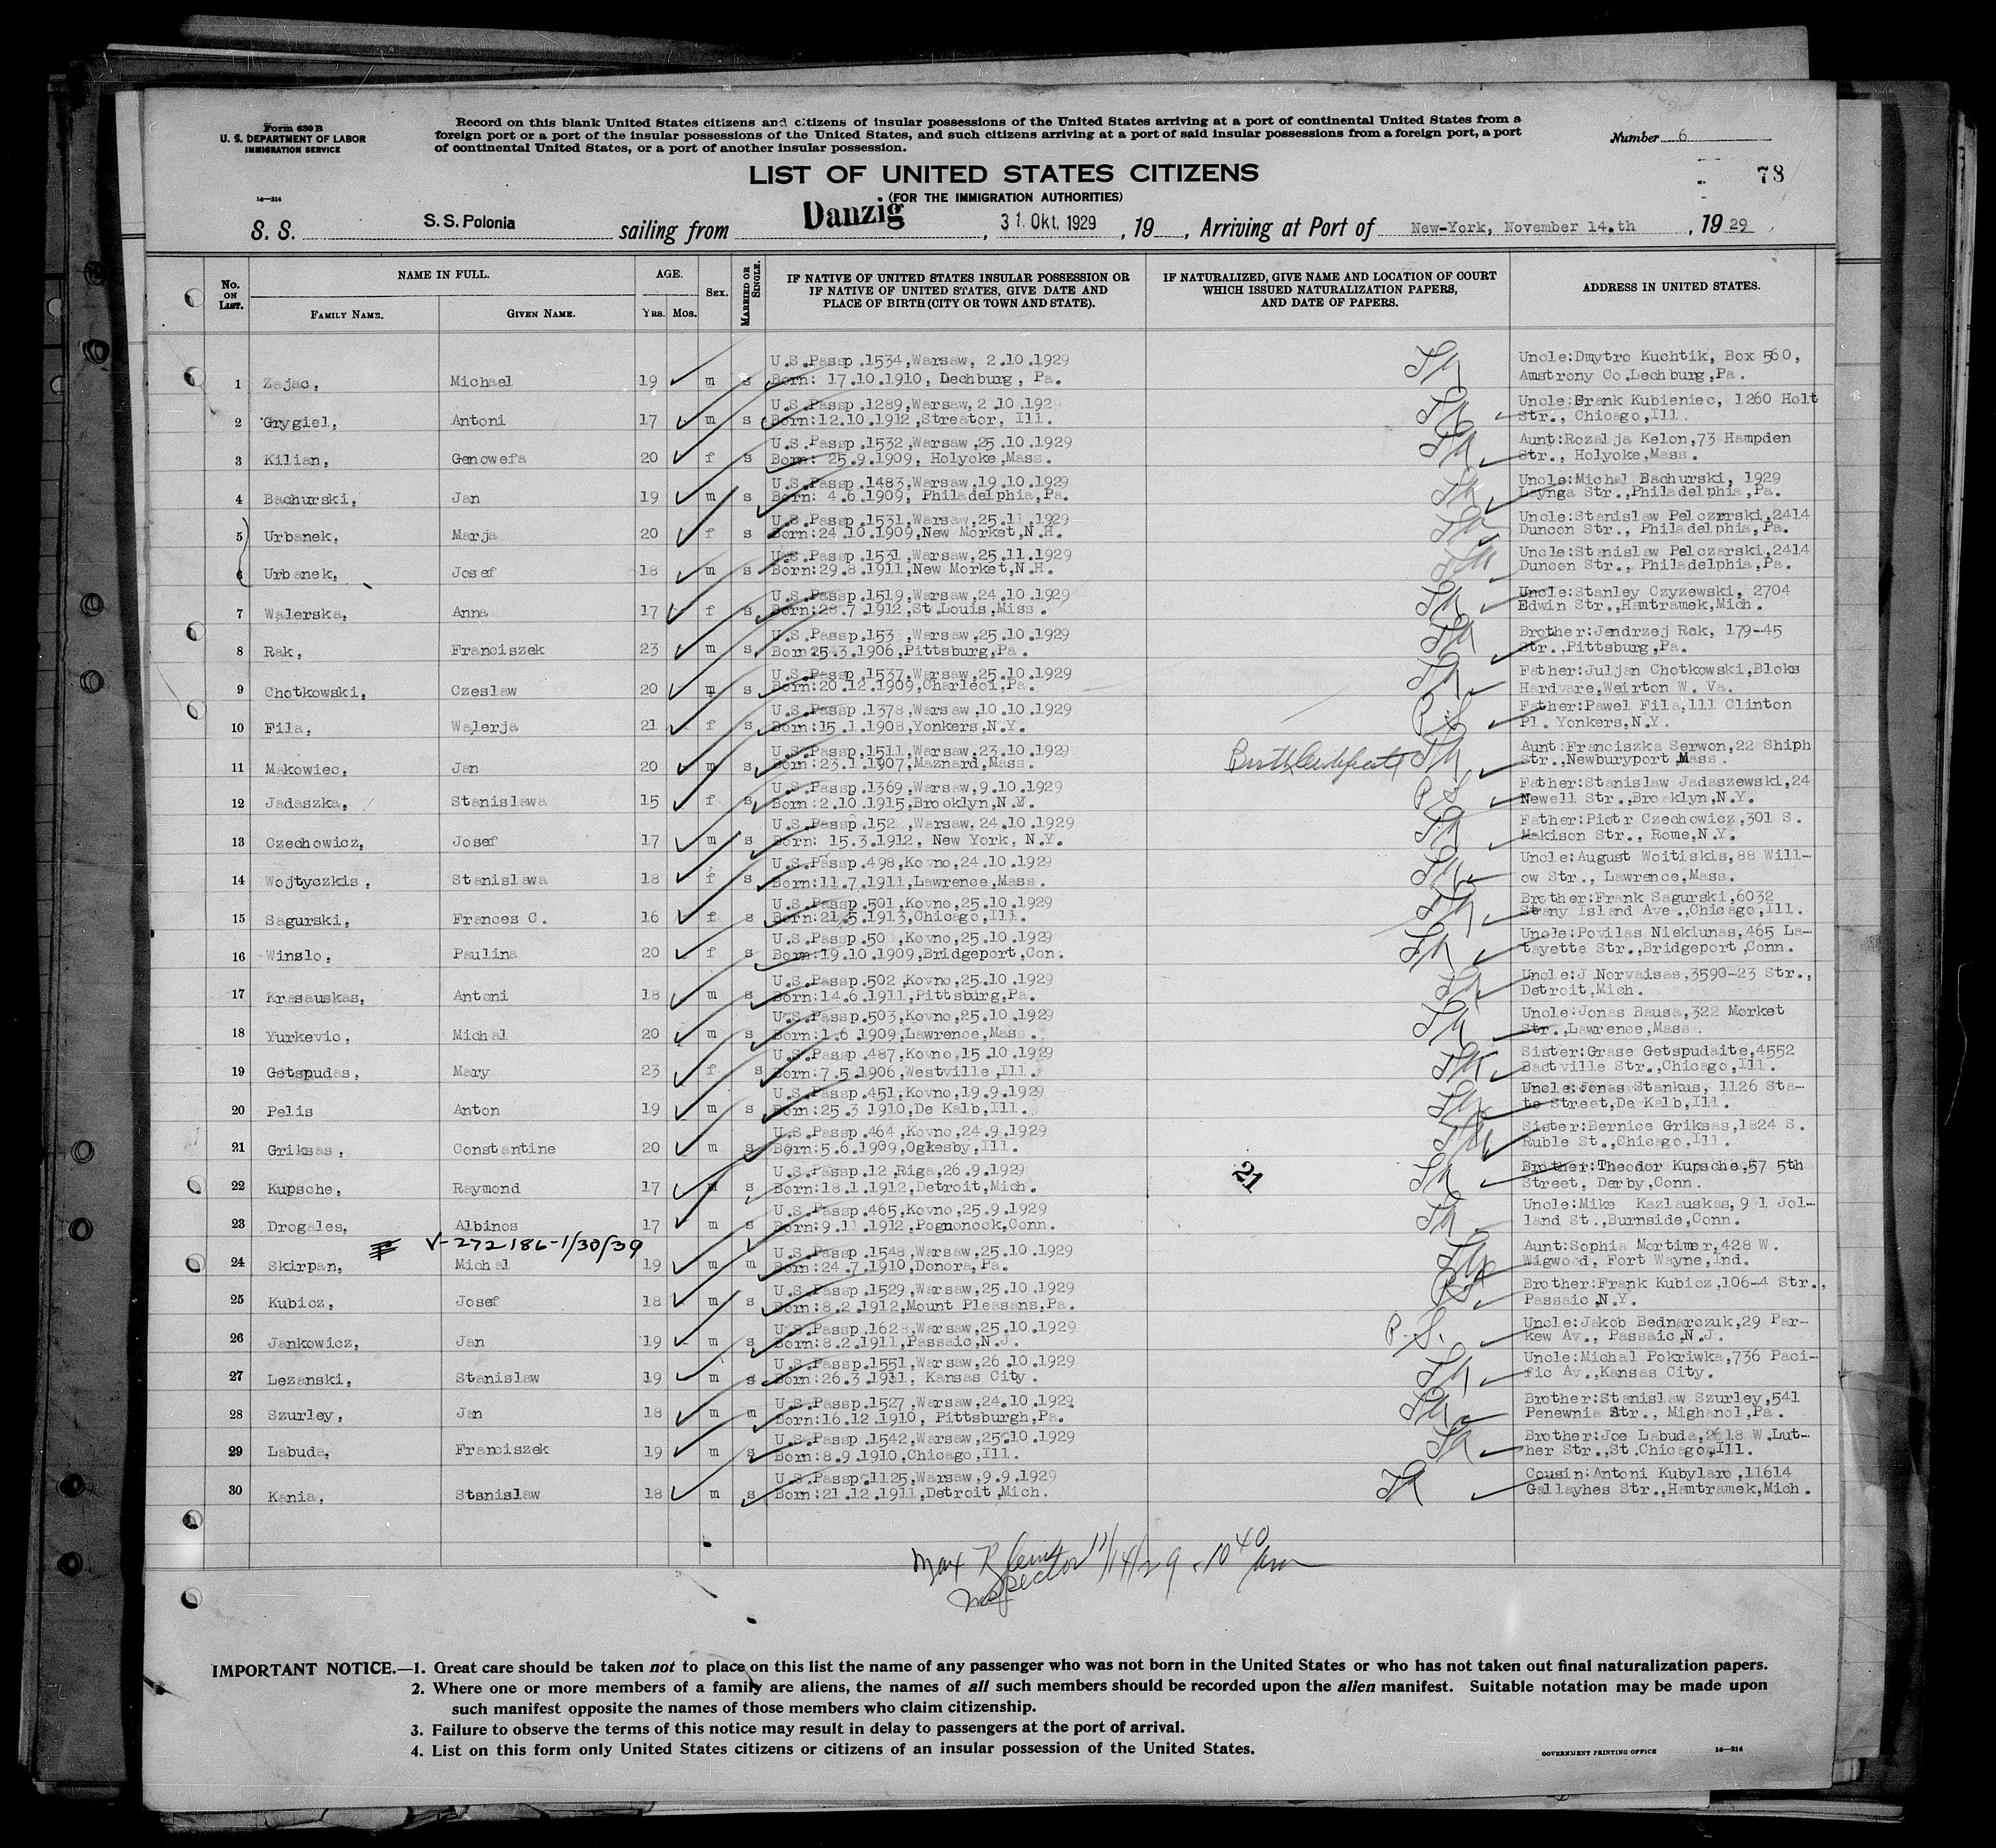 Form 630 B
U. S. DEPARTMENT OF LABOR
IMMIGRATION SERVICE
Record on this blank United States citizens and citizens of insular possessions of the United States arriving at a port of continental United States from a
foreign port or a port of the insular possessions of the United States, and such citizens arriving at a port of said insular possessions from a foreign port, a port
of continental United States, or a port of another insular possession.
Number 6
LIST OF UNITED STATES CITIZENS
78
(FOR THE IMMIGRATION AUTHORITIES)
14—214
S. S. S.S. Polonia sailing from Danzig, 31. Okt. 1929, 19 , Arriving at Port of New-York, November 14.th , 1929
No. ON LIST. NAME IN FULL. AGE. SEX. MARRIED OR SINGLE. IF NATIVE OF UNITED STATES INSULAR POSSESSION OR IF NATIVE OF UNITED STATES, GIVE DATE AND PLACE OF BIRTH (CITY OR TOWN AND STATE). IF NATURALIZED, GIVE NAME AND LOCATION OF COURT WHICH ISSUED NATURALIZATION PAPERS, AND DATE OF PAPERS. ADDRESS IN UNITED STATES.
FAMILY NAME. GIVEN NAME. YRS. MOS.
U.S.Passp.1534,Warsaw, 2.10.1929 Uncle:Dmytro Kuchtik, Box 560,
1 Zajac, Michael 19 m s Born: 17.10.1910, Dechburg, Pa. Amstrony Co.Lechburg,Pa.
U.S.Passp.1289,Warsaw,2.10.192 Uncle:Frank Kubieniec, 1260 Holt
2 Grygiel, Antoni 17 m s Born:12.10.1912,Streator, Ill. Str., Chicago,Ill.
U.S.Passp.1532,Warsaw,25.10.1929 Aunt:Rozalja Kelon,73 Hampden
3 Kilian, Genowefa 20 f s Born: 25.9.1909, Holyoke,Mass. Str., Holyoke,Mass.
U.S.Passp.1483,Warsaw,19.10.1929 Uncle:Michal Bachurski, 1929
4 Bachurski, Jan 19 m s Born: 4.6.1909, Philadelphia,Pa. Laynga Str.,Philadelphia,Pa.
U.S.Passp.1531,Warsaw,25.11.1929 Uncle:Stanislaw Pelczarski,2414
5 Urbanek, Marja 20 f s Born:24.10.1909,New Morket,N.H. Duncon Str., Philadelphia,Pa.
U.S.Passp.1531,Warsaw,25.11.1929 Uncle:Stanislaw Pelczarski,2414
6 Urbanek, Josef 18 m s Born:29.8.1911,New Morket,N.H. Duncon Str., Philadelphia,Pa.
U.S.Passp.1519,Warsaw,24.10.1929 Uncle:Stanley Czyzewski, 2704
7 Walerska, Anna 17 f s Born:28.7.1912,St.Louis,Miss. Edwin Str.,Hamtramek,Mich.
U.S.Passp.153 ,Warsaw,25.10.1929 Brother:Jendrzej Rok, 179-45
8 Rak, Franciszek 23 m s Born25.3.1906,Pittsburg,Pa. Str.,Pittsburg,Pa.
U.S.Passp.1537,Warsaw,25.10.1929 Father:Juljan Chotkowski,Bloks
9 Chotkowski, Czeslaw 20 m s Born:20.12.1909,Charleoi,Pa. Hardvare,Weirton W. Va.
U.S.Passp.1378,Warsaw,10.10.1929 Father:Pawel Fila,111 Clinton
10 Fila, Walerja 21 f s Born:15.1.1908,Yonkers,N.Y. Pl. Yonkers,N.Y.
U.S.Passp.1511,Warsaw,23.10.1929 Birth Certificate Aunt:Franciszka Serwon,22 Shiph
11 Makowiec, Jan 20 m s Born:23.1.1907,Maznard,Mass. Str.,Newburyport Mass.
U.S.Passp.1369,Warsaw,9.10.1929 P.S. Father:Stanislaw Jadaszewski,24
12 Jadaszka, Stanislawa 15 f s Born:2.10.1915,Brooklyn,N.Y. Newell Str.,Brooklyn,N.Y.
U.S.Passp.152 ,Warsaw,24.10.1929 Father:Piotr Czechowicz,301 S.
13 Czechowicz, Josef 17 m s Born: 15.3.1912, New York, N.Y. Makison Str., Rome,N.Y.
U.S.Passp.498,Kovno,24.10.1929 Uncle:August Woitiskis,88 Will-
14 Wojtyczkis, Stanislawa 18 f s Born:11.7.1911,Lawrence,Mass. ow Str., Lawrence,Mass.
U.S.Passp.501,Kovno,25.10.1929 Brother:Frank Sagurski,6032
15 Sagurski, Frances C. 16 f s Born:21.5.1913,Chicago,Ill. Stany Island Ave.,Chicago,Ill.
U.S.Passp.50 ,Kovno,25.10.1929 Uncle:Povilas Niekiunas,465 La-
16 Winslo, Paulina 20 f s Born:19.10.1909,Bridgeport,Con. fayette Str.,Bridgeport,Conn.
U.S.Passp.502,Kovno,25.10.1929 Uncle:J.Norvaisas,3590-23 Str.,
17 Krasauskas, Antoni 18 m s Born:14.6.1911,Pittsburg,Pa. Detroit,Mich.
U.S.Passp.503,Kovno,25.10.1929 Uncle:Jonas Bausa,322 Morket
18 Yurkevic, Michal 20 m s Born:1.6.1909,Lawrence,Mass. Str.,Lawrence,Mass.
U.S.Passp.487,Kovno,15.10.1929 Sister:Grase Getspudaite,4552
19 Getspudas, Mary 23 f s Born:7.5.1906,Westville,Ill. Bactville Str.,Chicago,Ill.
U.S.Passp.451,Kovno,19.9.1929 Uncle:Jonas Stankus, 1126 Sta-
20 Pelis Anton 19 m s Born:25.3.1910,De Kalb,Ill. te Street,De Kalb,Ill.
U.S.Passp.464,Kovno,24.9.1929 Sister:Bernice Griksas,1824 S.
21 Griksas, Constantine 20 m s Born:5.6.1909,Oglesby,Ill. Ruble St.,Chicago,Ill.
U.S.Passp.12 Riga,26.9.1929 21 Brother:Theodor Kupsche,57 5th
22 Kupsche, Raymond 17 m s Born:18.1.1912,Detroit,Mich. Street, Derby,Conn.
U.S.Passp.465,Kovno,25.9.1929 Uncle:Mike Kazlauskas, 91 Jol-
23 Drogales, Albinos 17 m s Born:9.11.1912,Pognonock,Conn. land St.,Burnside,Conn.
V-272186-1/30/39
U.S.Passp.1548,Warsaw,25.10.1929 Aunt:Sophia Mortimer,428 W.
24 Skirpan, Michal 19 m m Born:24.7.1910,Donora,Pa. Wigwood, Fort Wayne,Ind.
U.S.Passp.1529,Warsaw,25.10.1929 Brother:Frank Kubicz,106-4 Str.,
25 Kubicz, Josef 18 m s Born:8.2.1912,Mount Pleasans,Pa. Passaic,N.Y.
U.S.Passp.1628,Warsaw,25.10.1929 P.S. Uncle:Jakob Bednarczuk,29 Par-
26 Jankowicz, Jan 19 m s Born:8.2.1911,Passaic,N.J. kew Av., Passaic,N.J.
U.S.Passp.1551,Warsaw,26.10.1929 Uncle:Michal Pokriwka,736 Paci-
27 Lezanski, Stanislaw 19 m s Born:26.3.1911, Kansas City. fic Av.,Kansas City.
U.S.Passp.1527,Warsaw,24.10.1929 Brother:Stanislaw Szurley,541
28 Szurley, Jan 18 m m Born:16.12.1910, Pittsburgh,Pa. Penewnia Str., Mighanol,Pa.
U.S.Passp.1542,Warsaw,25.10.1929 Brother:Joe Labuda,2618 W.Lut-
29 Labuda, Franciszek 19 m s Born:8.9.1910,Chicago,Ill. her Str.,St.Chicago,Ill.
U.S.Passp.1125,Warsaw,9.9.1929 Cousin:Antoni Kubylaro,11614
30 Kania, Stanislaw 18 m s Born:21.12.1911,Detroit,Mich. Gallayhes Str.,Hamtramek,Mich.
Max 11/14/29 - 10 40 am
Inspector
IMPORTANT NOTICE.—1. Great care should be taken not to place on this list the name of any passenger who was not born in the United States or who has not taken out final naturalization papers.
2. Where one or more members of a family are aliens, the names of all such members should be recorded upon the alien manifest. Suitable notation may be made upon
such manifest opposite the names of those members who claim citizenship.
3. Failure to observe the terms of this notice may result in delay to passengers at the port of arrival.
4. List on this form only United States citizens or citizens of an insular possession of the United States.
GOVERNMENT PRINTING OFFICE 14—214